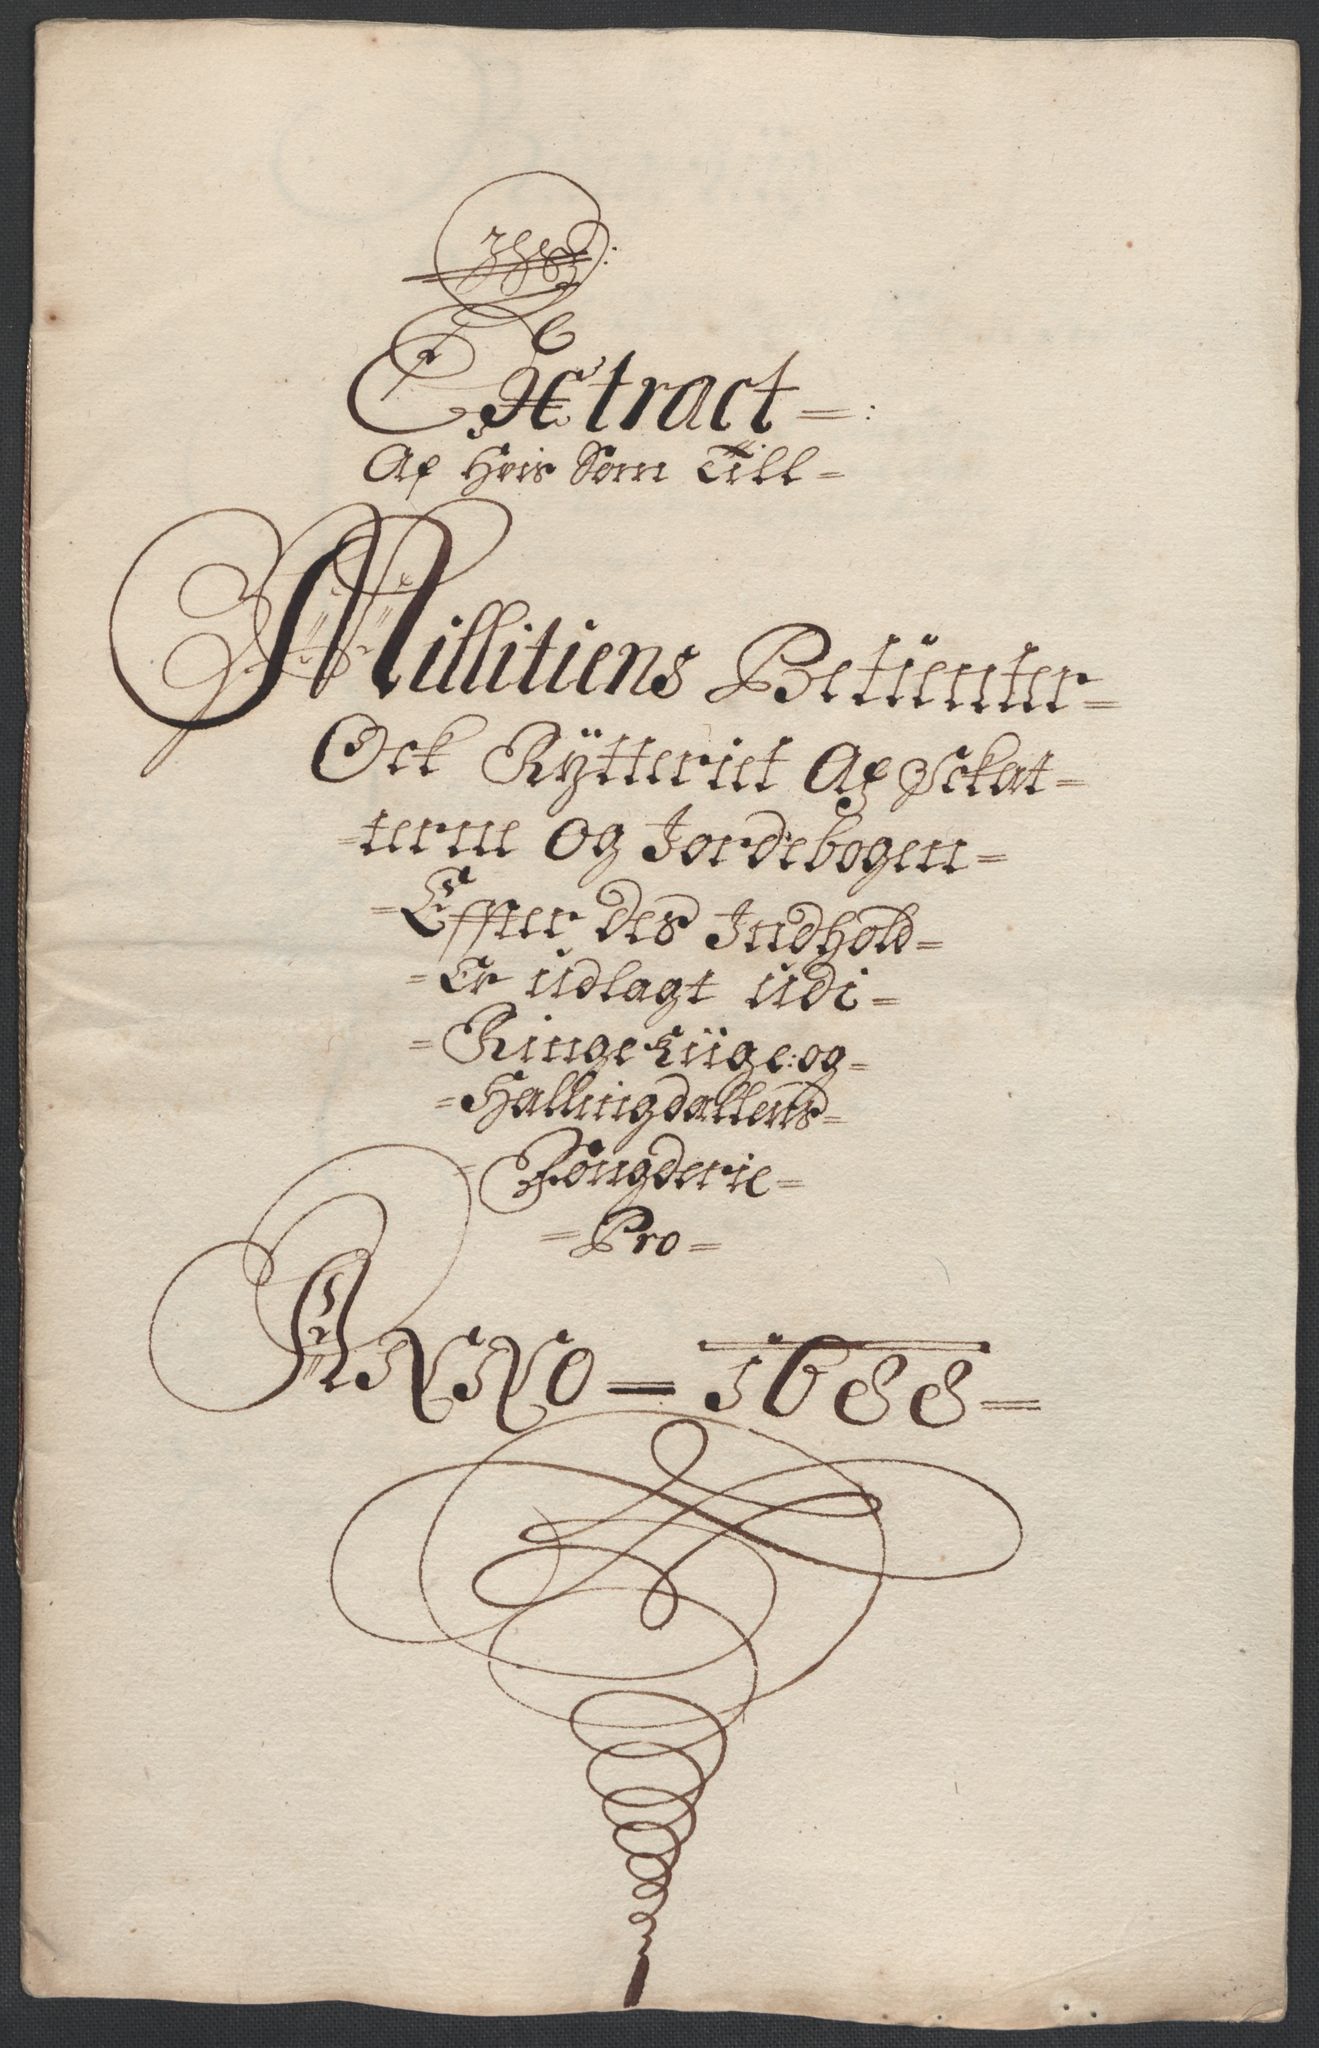 Extract
Af Hvis Som Till
Millitiens Betienter
Ock Rÿtteriet Af Sckat-
terne Og Jordebogen
Effter des Indhold
Er udlagt udi
Ringerüge: og
Hallingdallens
Fougderie
Pro
ANNO 1688